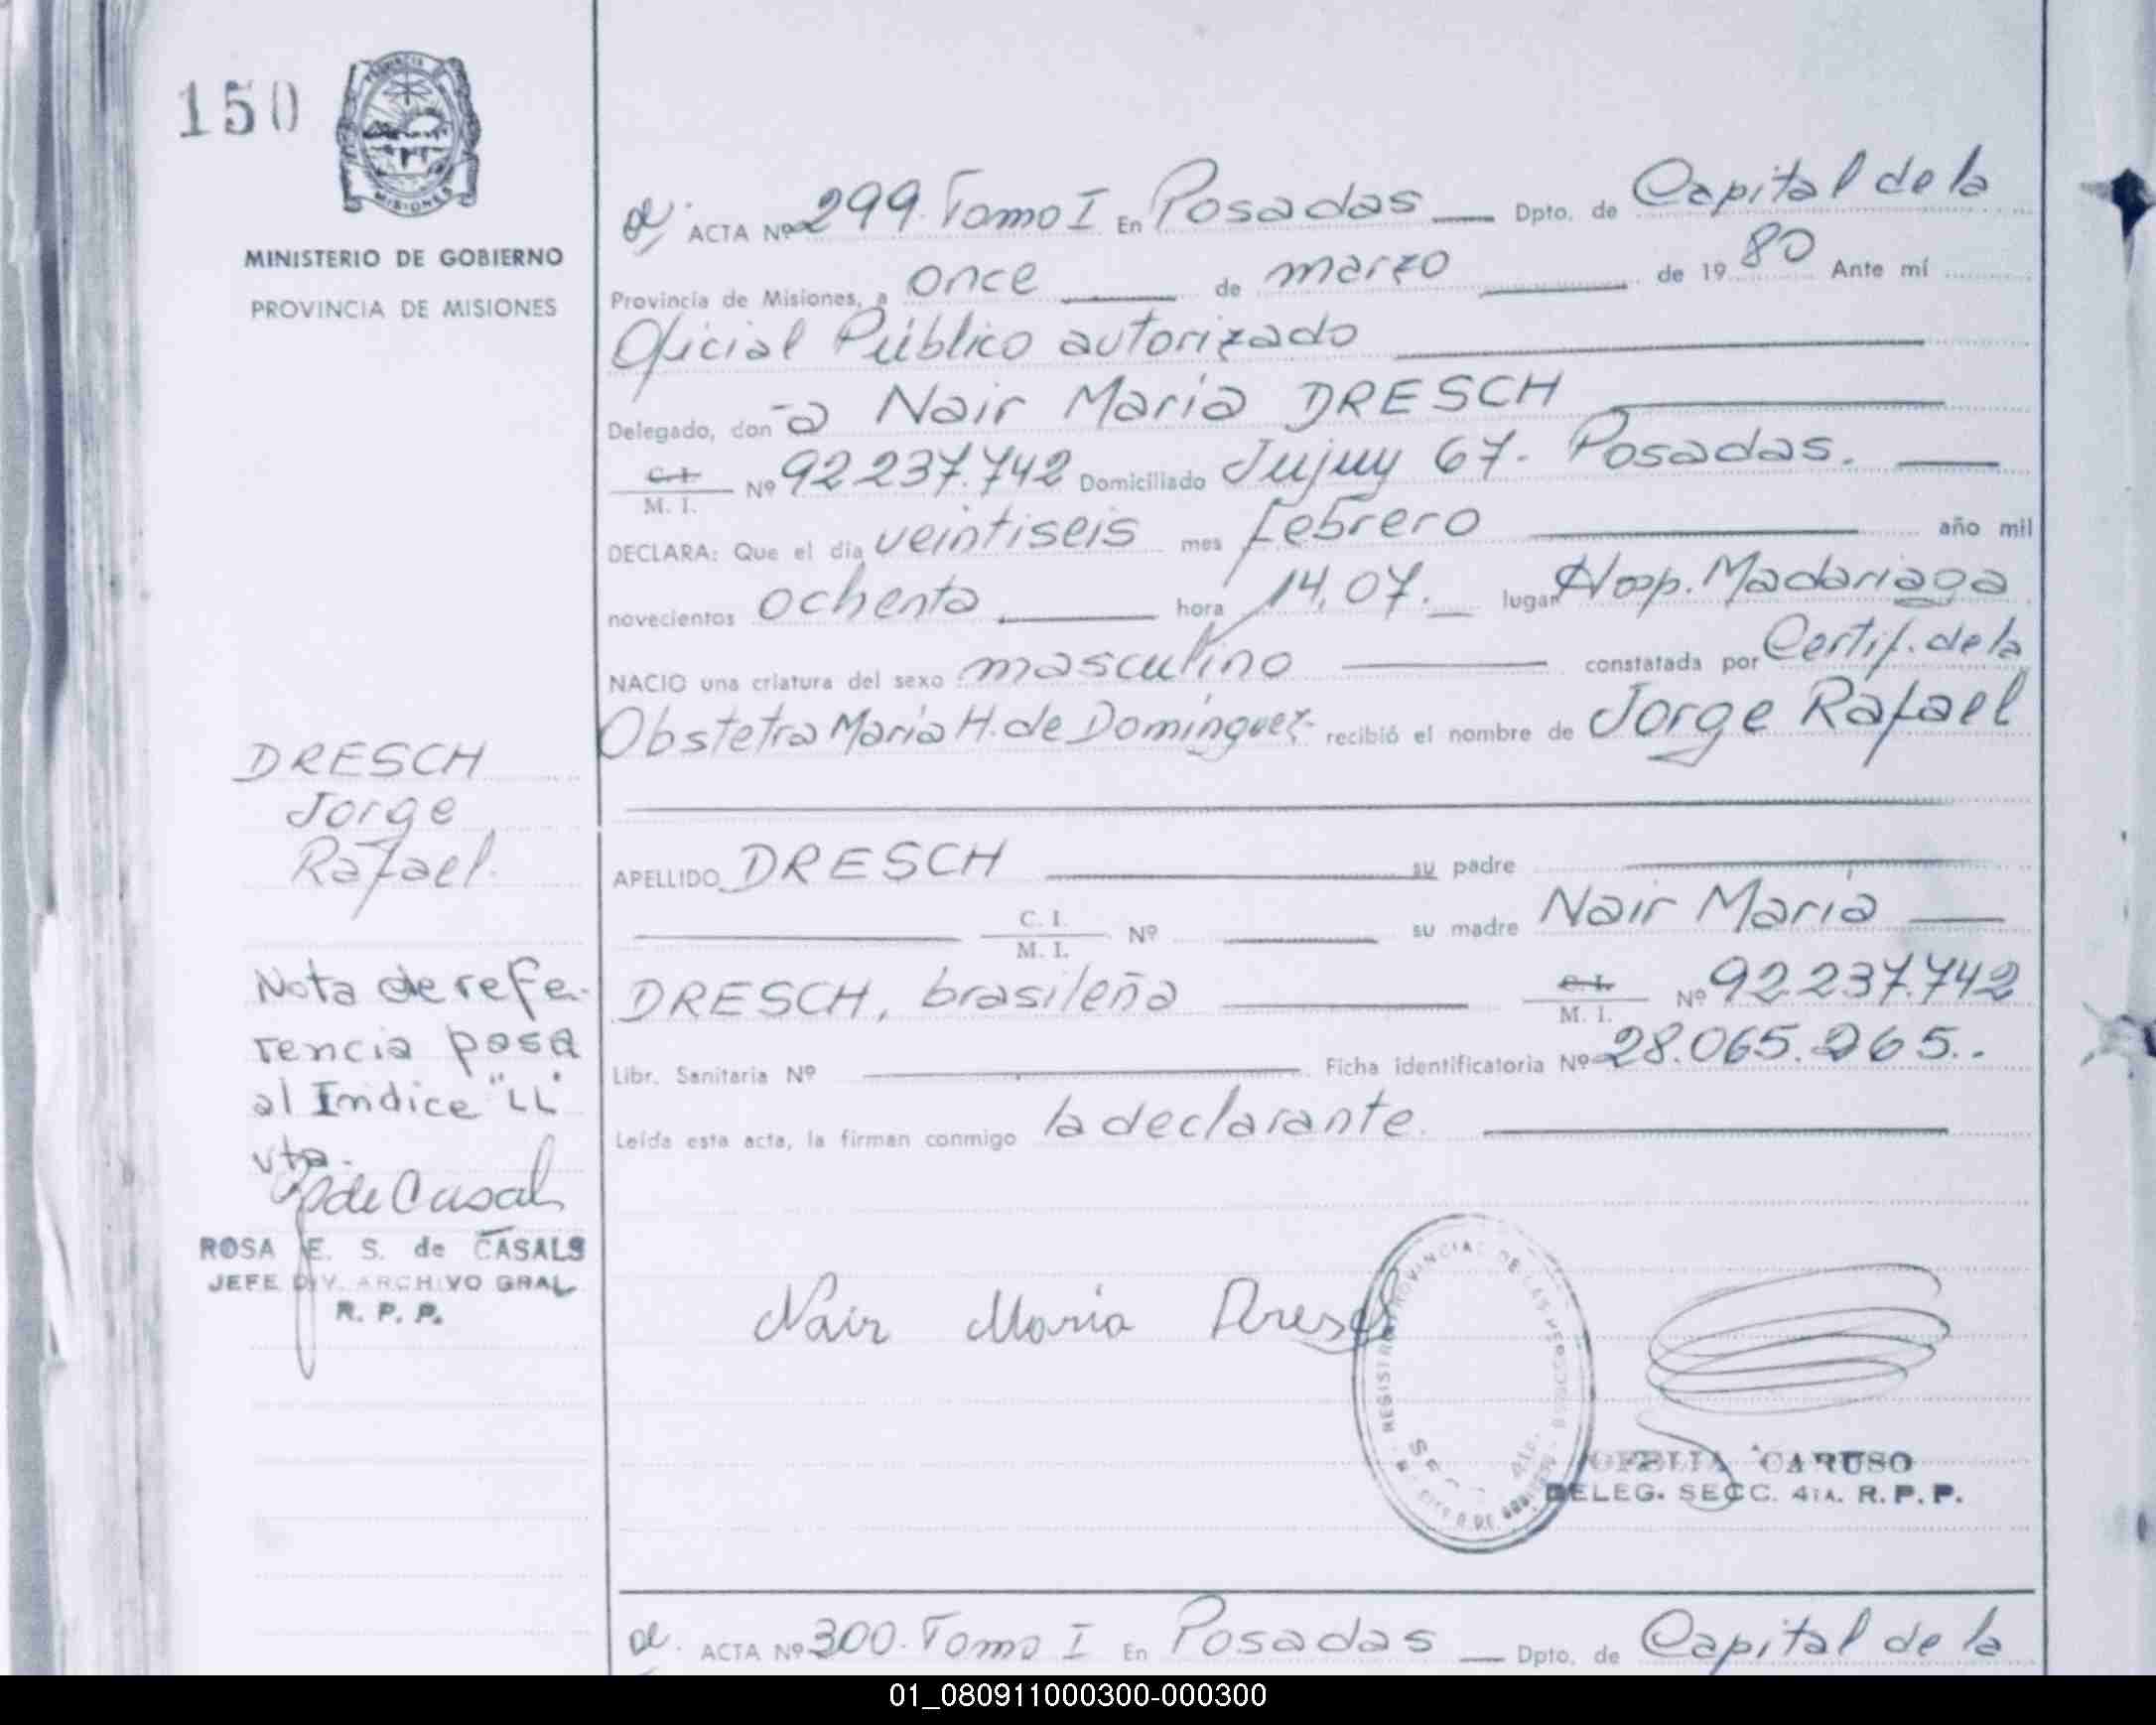 150
PROVINCIA
MISIONES
MINISTERIO DE GOBIERNO
PROVINCIA DE MISIONES
ACTA Nº 299. Tomo I En Posadas Dpto. de Capital de la
Provincia de Misiones, a once de marzo de 1980 Ante mí
Oficial Público autorizado
Delegado, doña Nair Maria DRESCH
C. I. / M. I. Nº 92.237.742 Domiciliado Jujuy 67. Posadas.
DECLARA: Que el día veintiseis mes febrero año mil
novecientos ochenta hora 14,07. lugar Hosp. Madariaga
NACIO una criatura del sexo masculino constatada por Certif. de la
Obstetra María H. de Domínguez recibió el nombre de Jorge Rafael
DRESCH
Jorge
Rafael.
APELLIDO DRESCH su padre
C. I. / M. I. Nº su madre Nair María
DRESCH, brasileña C. I. / M. I. Nº 92.237.742
Libr. Sanitaria Nº Ficha identificatoria Nº 28.065.265.
Leída esta acta, la firman conmigo la declarante.
Nota de refe-
rencia pasa
al Indice "LL"
vta.
de Casals
ROSA E. S. de CASALS
JEFE DIV. ARCHIVO GRAL
R. P. P.
Nair María Dresch
REGISTRO PROVINCIAL DE LAS PERSONAS
OFELIA CARUSO
DELEG. SECC. 4ta. R. P. P.
ACTA Nº 300. Tomo I En Posadas Dpto. de Capital de la
01_080911000300-000300